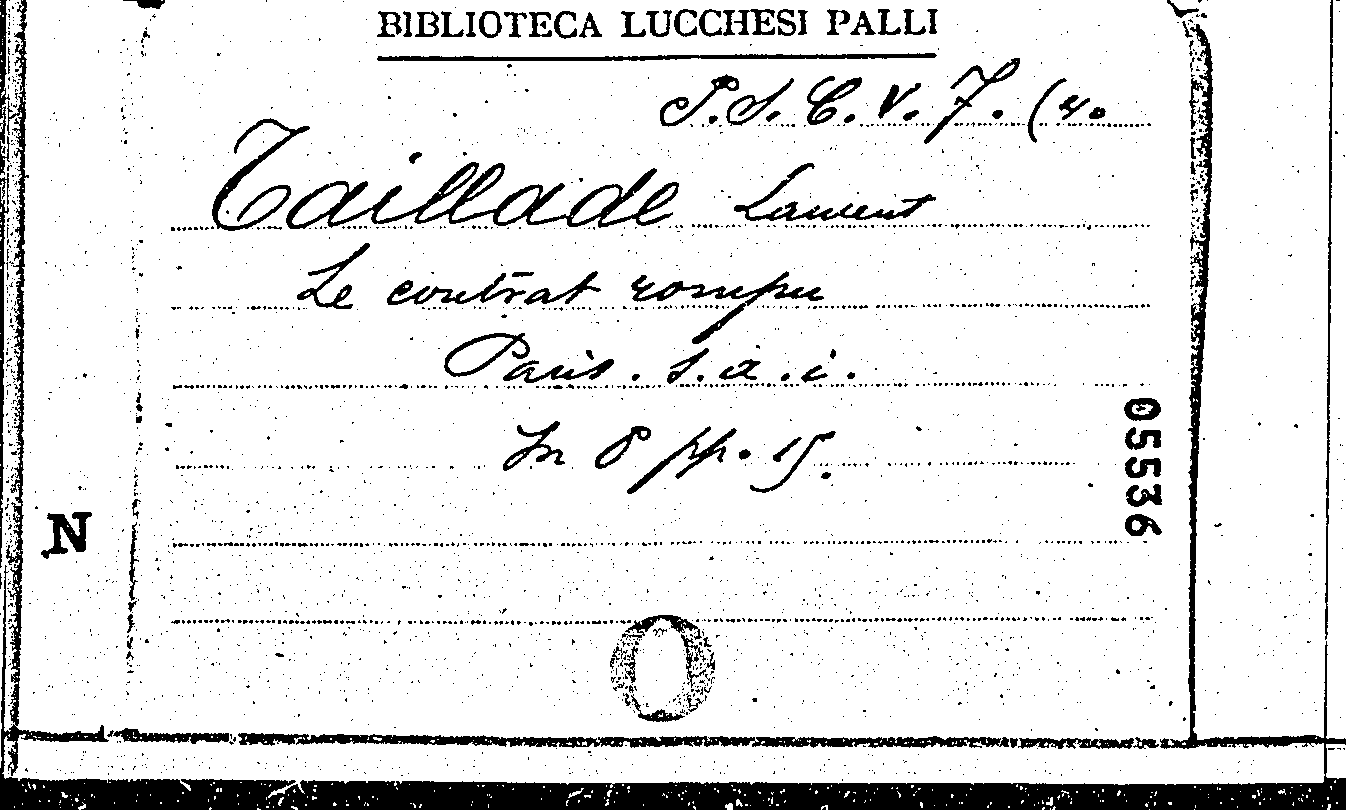 BIBLIOTECA LUCCHESI PALLI
P. S. C. V. 7. (4.
Taillade Laurent
Le contrat rompu
Paris. s. a. i.
In 8 pp. 15.
05536
N